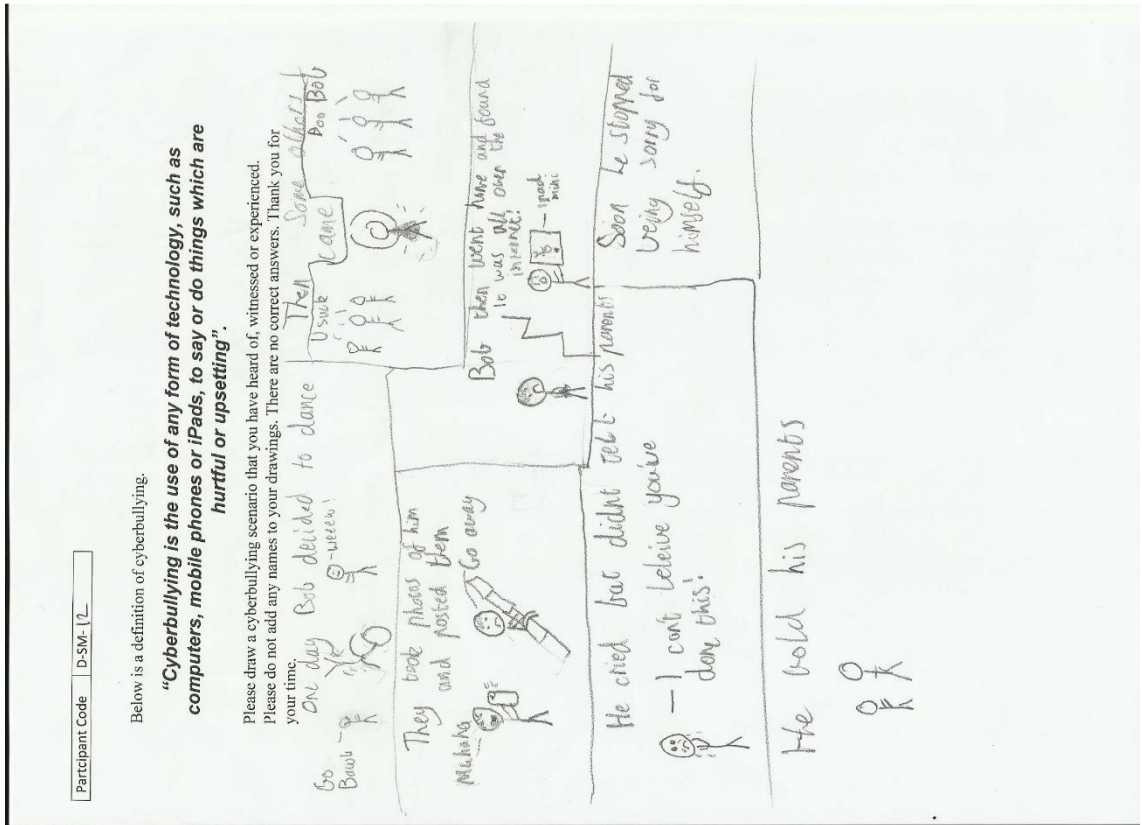 Partcipant Code D-SM-12
Below is a definition of cyberbullying.
“Cyberbullying is the use of any form of technology, such as
computers, mobile phones or iPads, to say or do things which are
hurtful or upsetting”.
Please draw a cyberbullying scenario that you have heard of, witnessed or experienced.
Please do not add any names to your drawings. There are no correct answers. Thank you for
your time.
One day Bob decided to dance
Go
-weeew!
Then Some others
came
U suck
Boo Bob
They took photos of him
and posted them
Muhaha
Go away
Bob then went home and found
it was all over the
internet!
- Ipad
mini
He cried but didnt tell his parents
- I cant beleive you've
done this!
Soon he stopped
being sorry for
himself.
He told his parents